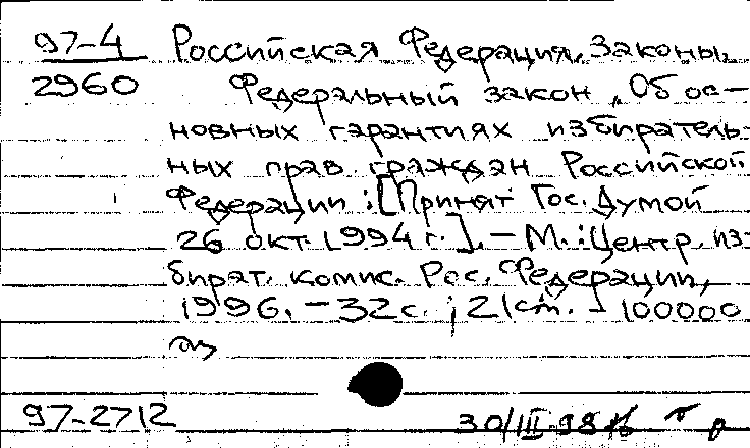 97-4 Российская Федерация. Законы.
2960 Федеральный закон „Об ос-
новных гарантиях избиратель-
ных прав граждан Российской
Федерации : [Принят Гос. Думой
26 окт. 1994 г.]. – М. : Центр. из-
бират. комис. Рос. Федерации,
1996. – 32 с. ; 21 см. – 100000
97-2712 30/III-98